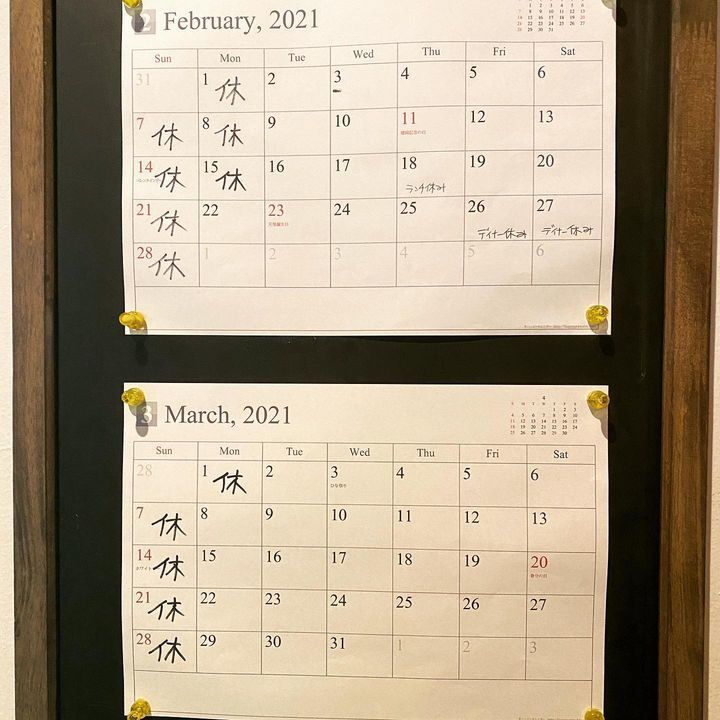 2 February, 2021
Sun Mon Tue Wed Thu Fri Sat
31 1 休 2 3 4 5 6
7 休 8 休 9 10 11 12 13
建国記念の日
14 休 15 休 16 17 18 19 20
ランチ休み
21 休 22 23 24 25 26 27
天皇誕生日
ディナー休み ディナー休み
28 休 1 2 3 4 5 6
3 March, 2021
4
S M T W T F S
1 2 3
4 5 6 7 8 9 10
11 12 13 14 15 16 17
18 19 20 21 22 23 24
25 26 27 28 29 30
Sun Mon Tue Wed Thu Fri Sat
28 1 休 2 3 4 5 6
ひな祭り
7 休 8 9 10 11 12 13
14 休 15 16 17 18 19 20
ホワイト
春分の日
21 休 22 23 24 25 26 27
28 休 29 30 31 1 2 3